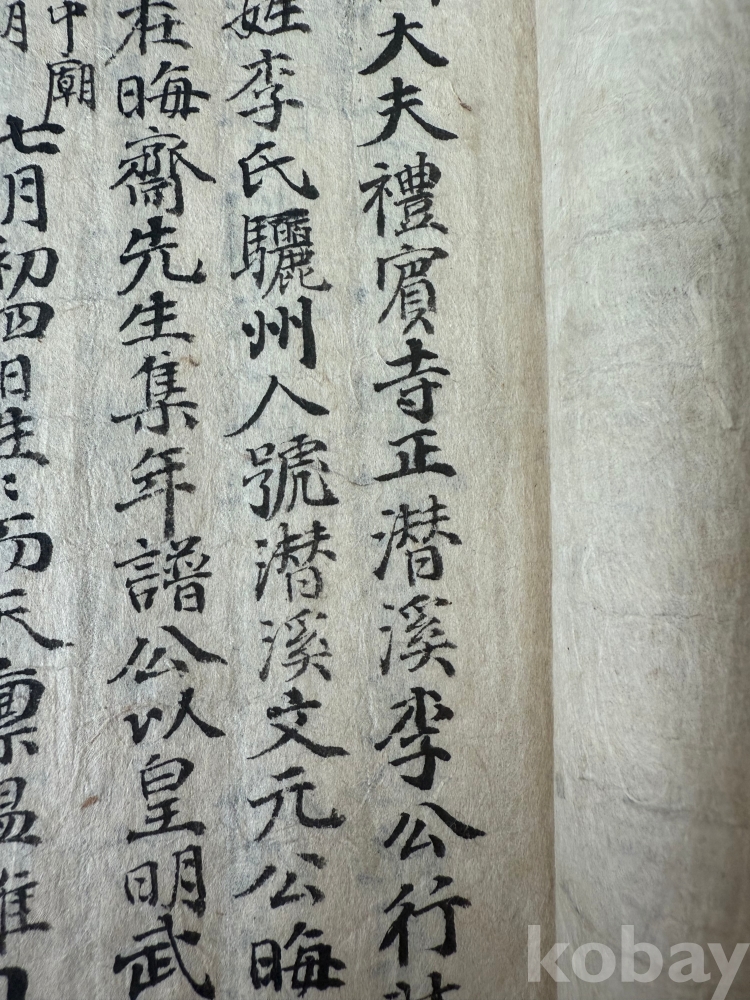 大夫禮賓寺正潛溪李公行
姓李氏驪州人號潛溪文元公晦
在晦齋先生集年譜公以皇明武
中廟
七月初四日生生而天稟溫雅
kobay